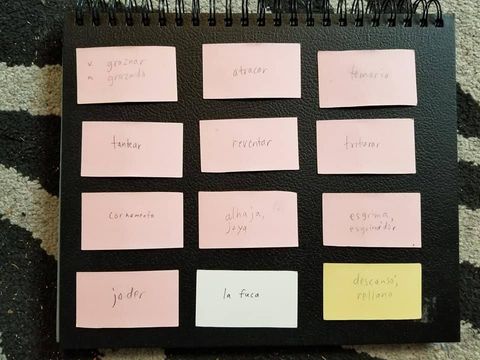 v. graznar
n. graznido
atracar
temario
tantear
reventar
triturar
cornamenta
alhaja,
joya
esgrima,
esgrimidor
joder
la foca
descanso,
rellano